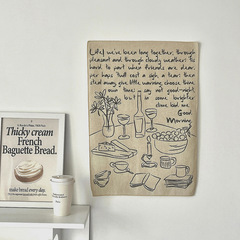 Life! we've been long together, through
pleasant and through cloudy weather; 'tis
hard to part when friends are dear;
perhaps twill cost a sigh, a tear; then
steal away, give little warning, choose thine
own time; say not good-night,
but in some brighter
clime bid me
Good
Morning
Thicky cream
French
Baguette Bread.